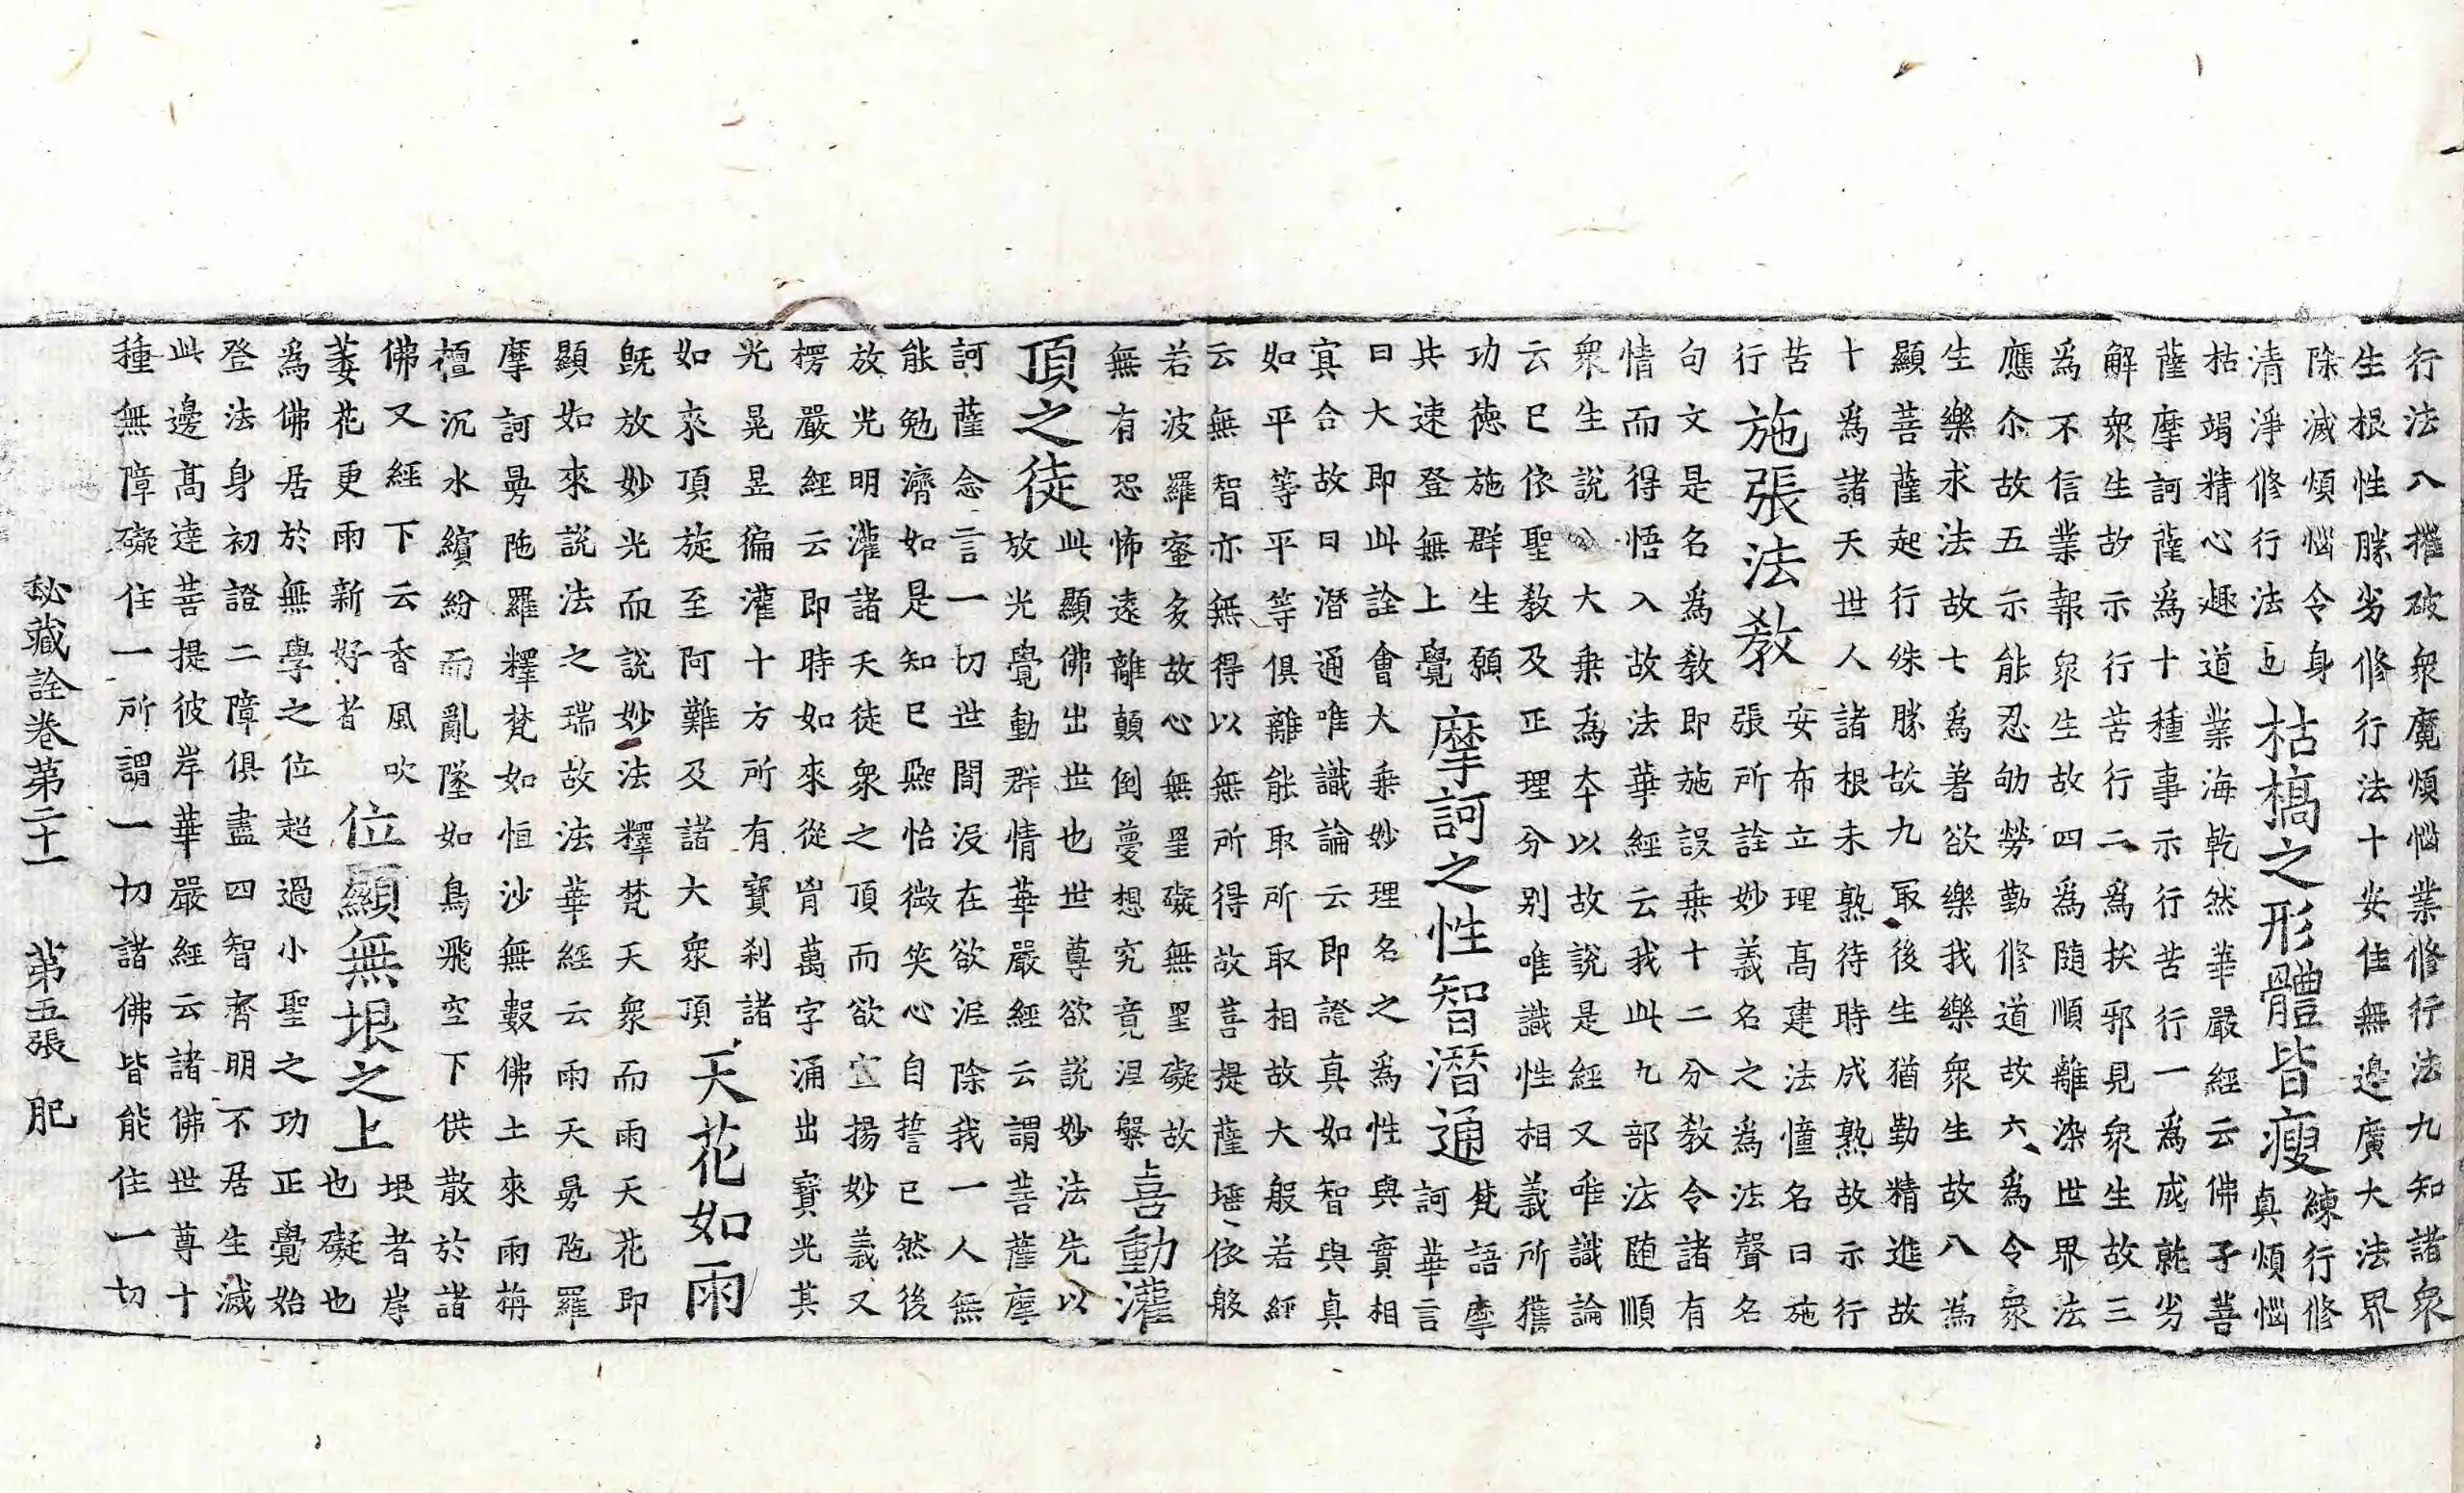 行法八摧破衆魔煩惱業修行法九知諸衆
生根性勝劣修行法十安住無邊廣大法界
除滅煩惱令身
清淨修行法也
枯槁之形體皆瘦
練行修
真煩惱
枯竭精心趣道業海乾然華嚴經云佛子菩
薩摩訶薩為十種事示行苦行一為成就劣
解衆生故示行苦行二為扷邪見衆生故三
為不信業報衆生故四為隨順離染世界法
應尒故五示能忍劬勞勤修道故六為令衆
生樂求法故七為著欲樂我樂衆生故八為
顯菩薩起行殊勝故九冣後生猶勤精進故
十為諸天世人諸根未熟待時成熟故示行
苦
行
施張法教
安布立理高建法幢名曰施
張所詮妙義名之為法聲名
句文是名為教即施設乗十二分教令諸有
情而得悟入故法華經云我此九部法随順
衆生說入大乗為夲以故說是經又唯識論
云已依聖教及正理分別唯識性相義所獲
功徳施群生願
共速登無上覺
摩訶之性智潛通
梵語摩
訶華言
曰大即此詮會大乗妙理名之為性與實相
冥合故曰潛通唯識論云即證真如智與真
如平等平等俱離能取所取相故大般若經
云無智亦無得以無所得故菩提薩埵依般
若波羅蜜多故心無罣礙無罣礙故
無有恐怖遠離顛倒夢想究竟涅槃
喜動灌
頂之徒
此顯佛出世也世尊欲說妙法先以
放光覺動群情華嚴經云謂菩薩摩
訶薩念言一切世間沒在欲泥除我一人無
能勉濟如是知已熙怡微笑心自誓已然後
放光明灌諸天徒衆之頂而欲宣揚妙義又
楞嚴經云即時如來從胷萬字涌出寶光其
光晃昱徧灌十方所有寶刹諸
如來頂旋至阿難及諸大衆頂
天花如雨
旣放妙光而說妙法釋梵天衆而雨天花即
顯如來說法之瑞故法華經云雨天曼陁羅
摩訶曼陁羅釋梵如恒沙無數佛土來雨栴
檀沉水繽紛而亂墜如鳥飛空下供散於諸
佛又經下云香風吹
萎花更雨新好者
位顯無垠之上
垠者岸
也礙也
為佛居於無學之位超過小聖之功正覺始
登法身初證二障俱盡四智齊明不居生滅
此邊高達菩提彼岸華嚴經云諸佛世尊十
種無障礙住一所謂一切諸佛皆能住一切
秘藏詮卷第二十一　第五張　肥